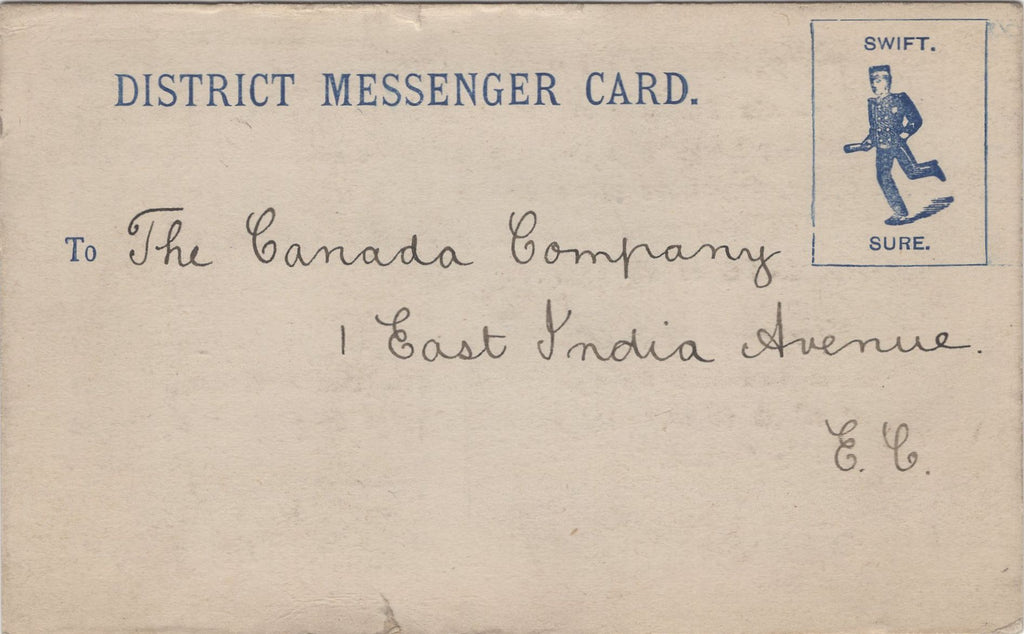 SWIFT.
DISTRICT MESSENGER CARD.
SURE.
To The Canada Company
1 East India Avenue.
E. C.